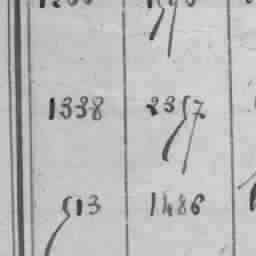 1338 2357
513 1486